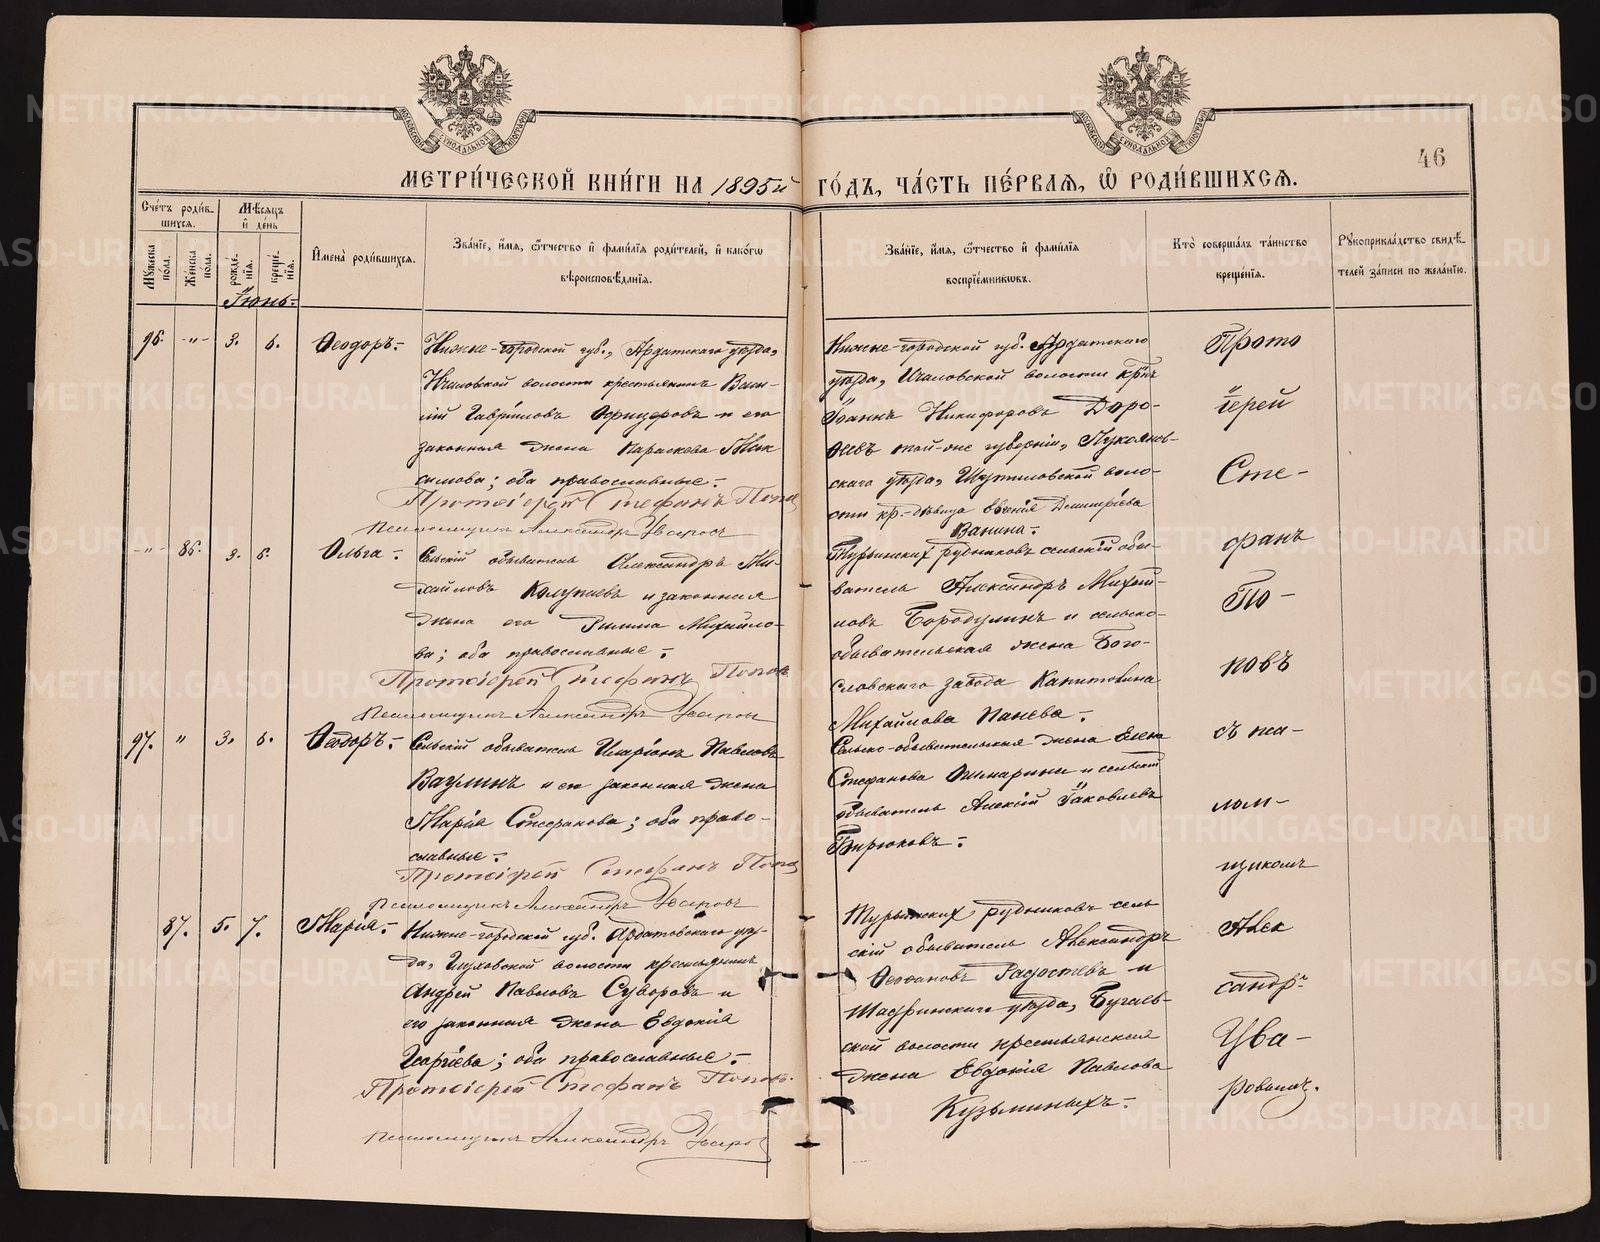 46
МЕТРИ́ЧЕСКОЙ КНИ́ГИ НА 1895й ГО́ДЪ, ЧА́СТЬ ПЕ́РВАЯ, Ѡ РОДИ́ВШИХСЯ.
Сче́тъ роди́в-
шихся.
Му́жеска пола.
Же́нска пола.
Мѣ́сяцъ
и де́нь
рожде́-
нія.
креще́-
нія.
Имена̀ роди́вшихся.
Зва́ніе, и́мя, ѻ́тчество и фами́лія роди́телей, и како́гѡ
вѣроисповѣ́данія.
Зва́ніе, и́мя, ѻ́тчество и фами́лія
воспріе́мникѡвъ.
Кто̀ соверша́лъ та́инство
креще́нія.
Рꙋкоприкла́дство свидѣ́-
телей за́писи по жела́нію.
Іюнь.
96. -"- 3. 6. Ѳеодоръ.
Ниже-городской губ., Ардатскаго уѣзда,
Ичаловской волости крестьянинъ Васи-
лій Гавріиловъ Офицеровъ и его
законная жена Параскева Мак
симова; оба православные.
Протоіерей Стефанъ Попов
Псаломщикъ Александръ Уваровъ
Ниже-городской губ. Ардатскаго
уѣзда, Ичаловской волости крнъ
Іоаннъ Никифоровъ Доро-
ѳеевъ той-же губерніи, Лукоянов-
скаго уѣзда, Шутиловской воло-
сти кр. дѣвица Евгенія Димитріева
Ванина.
-"- 86. 3. 6. Ольга.
Сельскій обыватель Александръ Ми-
хайловъ Колупаевъ и законная
жена его Римма Михайло-
ва; оба православные.
Протоіерей Стефанъ Попов
Псаломщикъ Александръ Уваров
Турьинскихъ рудниковъ сельскій обы-
ватель Александръ Михай-
ловъ Бородулинъ и сельско-
обывательская жена Бого-
словскаго завода Капитолина
Михайлова Панева.
97. " 3. 6. Ѳеодоръ.
Сельскій обыватель Иларіонъ Павловъ
Ваулинъ и его законная жена
Марія Стефанова; оба право-
славные.
Протоіерей Стефанъ Попов
Псаломщикъ Александръ Уваровъ
Сельско-обывательская жена Елена
Стефанова и сельскій
обыватель Алексій Іаковлевъ
Бирюковъ.
87. 5. 7. Марія.
Ниже-городской губ. Ардатовскаго уѣз-
да, Глуховской волости крестьянинъ
Андрей Павловъ Суворовъ и
его законная жена Евдокія
Георгіева; оба православные.
Протоіерей Стефанъ Поповъ.
Псаломщикъ Александръ Уваров
Турьинскихъ рудниковъ сель
скій обыватель Александръ
Ѳеофановъ Радостевъ и
Шадринскаго уѣзда, Бугаев-
ской волости крестьянская
жена Евдокія Павлова
Кузьминыхъ.
Прото
іерей
Сте-
фанъ
По-
повъ
съ пса-
лом-
щикомъ
Алек
сандр.
Ува-
ровымъ.